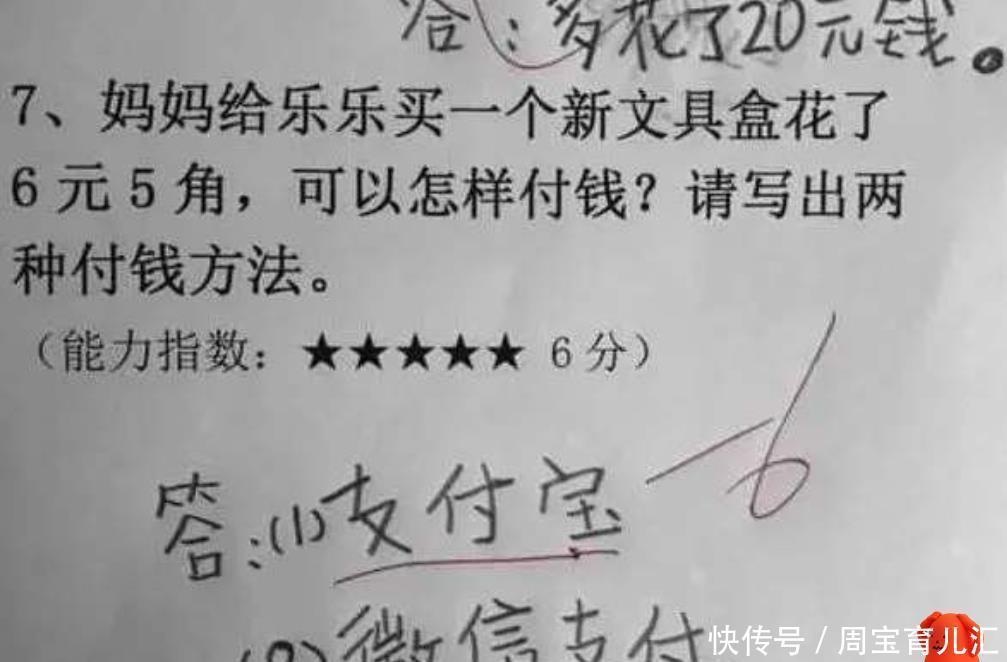 答：多花了20元钱。
7、妈妈给乐乐买一个新文具盒花了
6元5角，可以怎样付钱？请写出两
种付钱方法。
（能力指数：★★★★★ 6分）
-6
答：(1)支付宝
(2)微信支付
快传号/周宝育儿汇